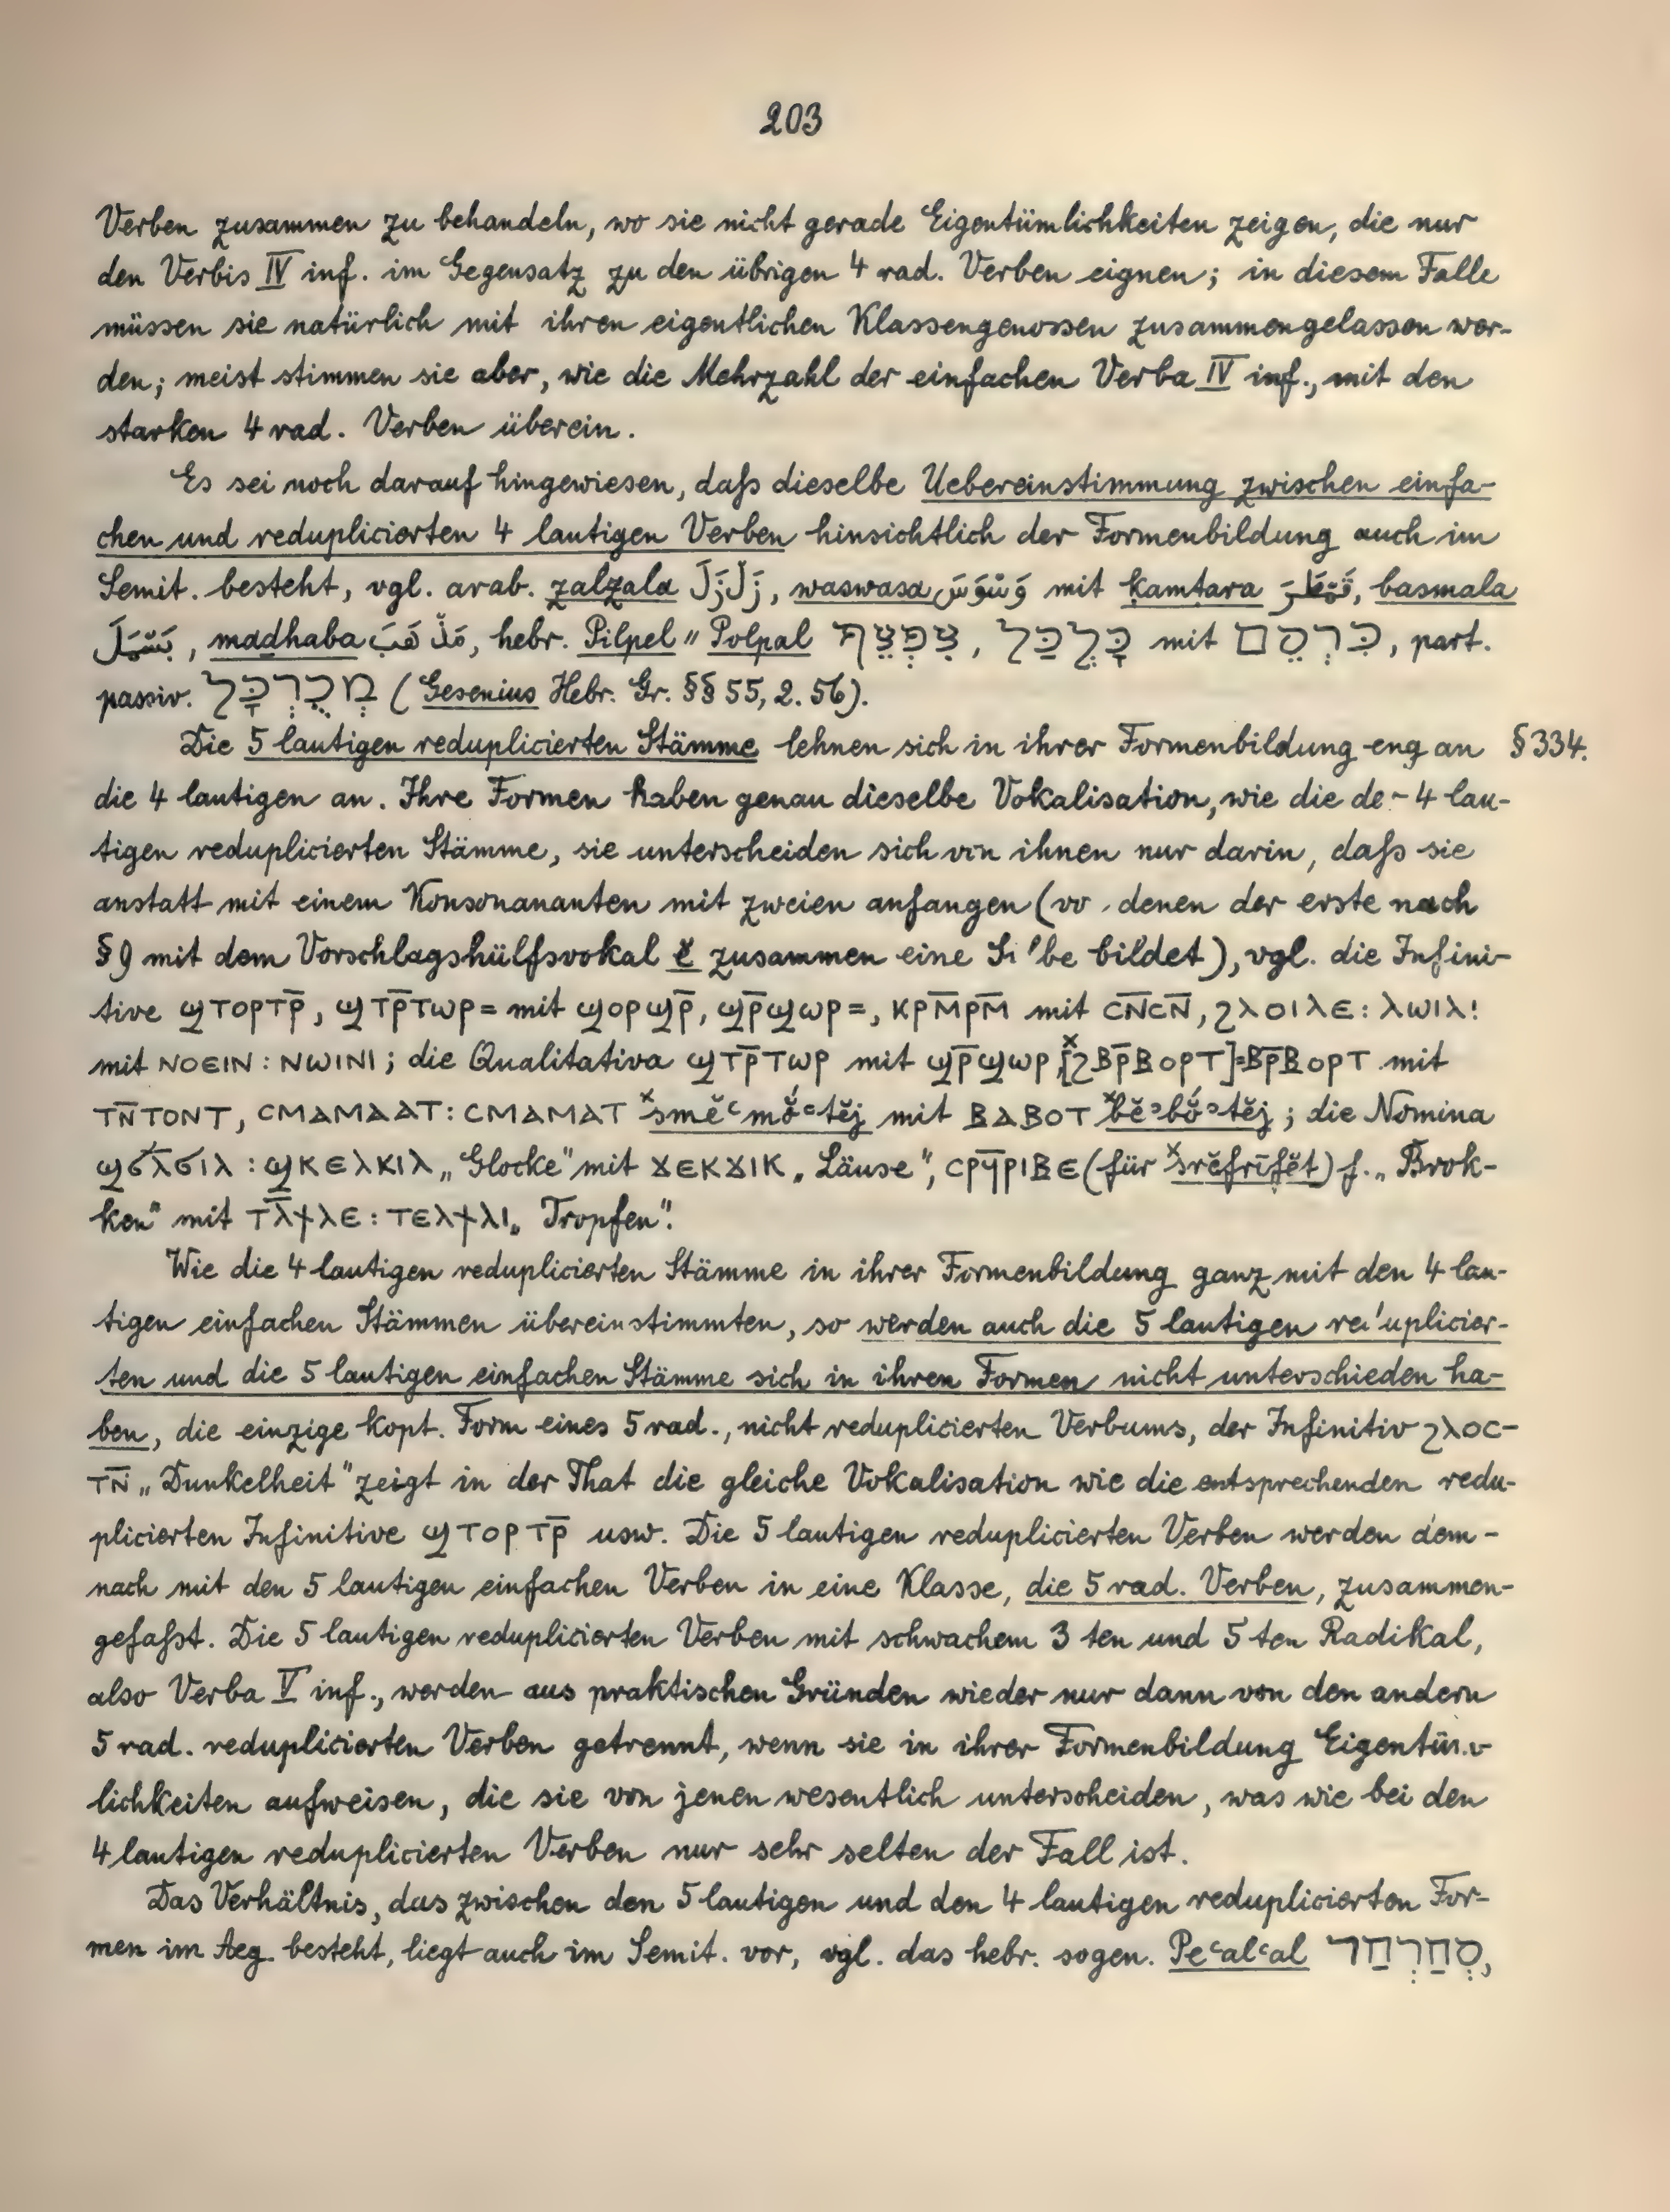 203
Verben zusammen zu behandeln, wo sie nicht gerade Eigentümlichkeiten zeigen, die nur
den Verbis IV inf. im Gegensatz zu den übrigen 4 rad. Verben eignen; in diesem Falle
müssen sie natürlich mit ihren eigentlichen Klassengenossen zusammengelassen wer-
den; meist stimmen sie aber, wie die Mehrzahl der einfachen Verba IV inf., mit den
starken 4 rad. Verben überein.
Es sei noch darauf hingewiesen, daß dieselbe Uebereinstimmung zwischen einfa-
chen und reduplicierten 4 lautigen Verben hinsichtlich der Formenbildung auch im
Semit. besteht, vgl. arab. zalzala زَلْزَلَ, waswasa وَسْوَسَ mit ḳamtara, basmala
بَسْمَلَ, maḏhaba مَذْهَبَ, hebr. Pilpel " Polpal צִפְצֵף, כָּלְכַּל mit כִּרְסֵם, part.
passiv. מְכֻרְבָּל (Gesenius Hebr. Gr. §§ 55, 2. 56).
Die 5 lautigen reduplicierten Stämme lehnen sich in ihrer Formenbildung eng an § 334.
die 4 lautigen an. Ihre Formen haben genau dieselbe Vokalisation, wie die de- 4 lau-
tigen reduplicierten Stämme, sie unterscheiden sich von ihnen nur darin, daß sie
anstatt mit einem Konsonananten mit zweien anfangen (vo. denen der erste nach
§ 9 mit dem Vorschlagshülfsvokal ĕ zusammen eine Si'be bildet), vgl. die Infini-
tive ϣⲧⲟⲣⲧⲣ̅, ϣⲧⲣ̅ⲧⲱⲣ= mit ϣⲟⲣϣⲣ̅, ϣⲣ̅ϣⲱⲣ=, ⲕⲣⲙ̅ⲣⲙ̅ mit ⲥⲛ̅ⲥⲛ̅, ϩⲗⲟⲓⲗⲉ: ⲗⲱⲓⲗ!
mit ⲛⲟⲉⲓⲛ: ⲛⲱⲓⲛⲓ; die Qualitativa ϣⲧⲣ̅ⲧⲱⲣ mit ϣⲣ̅ϣⲱⲣ, [ˣϩⲃⲣ̅ⲃⲟⲣⲧ]=ⲃⲣ̅ⲃⲟⲣⲧ mit
ⲧⲛ̅ⲧⲟⲛⲧ, ⲥⲙⲁⲙⲁⲁⲧ: ⲥⲙⲁⲙⲁⲧ ˣsmĕʿmŏ́ʿtĕj mit ⲃⲁⲃⲟⲧ ˣbĕʾbŏ́ʾtĕj; die Nomina
ϣϭⲗ̅ϭⲓⲗ: ϣⲕⲉⲗⲕⲓⲗ „Glocke" mit ϫⲉⲕϫⲓⲕ „Läuse", ⲥⲣϥ̅ⲣⲓⲃⲉ (für ˣsrĕfrīfĕt) f. „Brok-
ken" mit ⲧⲗ̅ϯⲗⲉ: ⲧⲉⲗϯⲗⲓ „Tropfen".
Wie die 4 lautigen reduplicierten Stämme in ihrer Formenbildung ganz mit den 4 lau-
tigen einfachen Stämmen übereinstimmten, so werden auch die 5 lautigen re'uplicier-
ten und die 5 lautigen einfachen Stämme sich in ihren Formen nicht unterschieden ha-
ben, die einzige kopt. Form eines 5 rad., nicht reduplicierten Verbums, der Infinitiv ϩⲗⲟⲥ-
ⲧⲛ̅ „Dunkelheit" zeigt in der That die gleiche Vokalisation wie die entsprechenden redu-
plicierten Infinitive ϣⲧⲟⲣⲧⲣ̅ usw. Die 5 lautigen reduplicierten Verben werden dem-
nach mit den 5 lautigen einfachen Verben in eine Klasse, die 5 rad. Verben, zusammen-
gefaßt. Die 5 lautigen reduplicierten Verben mit schwachem 3 ten und 5 ten Radikal,
also Verba V inf., werden aus praktischen Gründen wieder nur dann von den andern
5 rad. reduplicierten Verben getrennt, wenn sie in ihrer Formenbildung Eigentüm-
lichkeiten aufweisen, die sie von jenen wesentlich unterscheiden, was wie bei den
4 lautigen reduplicierten Verben nur sehr selten der Fall ist.
Das Verhältnis, das zwischen den 5 lautigen und den 4 lautigen reduplicierten For-
men im Aeg. besteht, liegt auch im Semit. vor, vgl. das hebr. sogen. Peʿalʿal סְחַרְחַר,